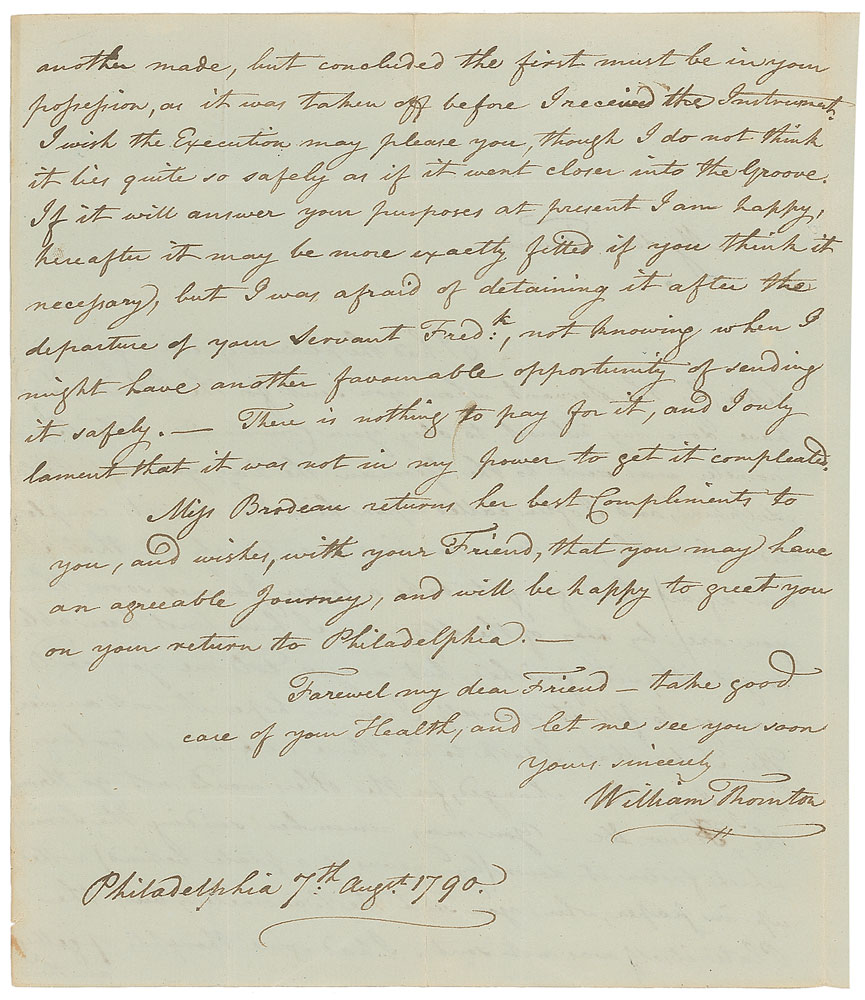 another made, but concluded the first must be in your
possession, as it was taken off before I received the Instrument.
I wish the Execution may please you, though I do not think
it lies quite so safely as if it went closer into the Groove.
If it will answer your purposes at present I am happy,
hereafter it may be more exactly fitted if you think it
necessary, but I was afraid of detaining it after the
departure of your Servant Fred:k, not knowing when I
might have another favourable opportunity of sending
it safely. — There is nothing to pay for it, and I only
lament that it was not in my power to get it compleated.
Miss Brodeau returns her best Compliments to
you, and wishes, with your Friend, that you may have
an agreeable Journey, and will be happy to greet you
on your return to Philadelphia. —
Farewel my dear Friend — take good
care of your Health, and let me see you soon
Yours sincerely
William Thornton
Philadelphia 7.th Augst. 1790.